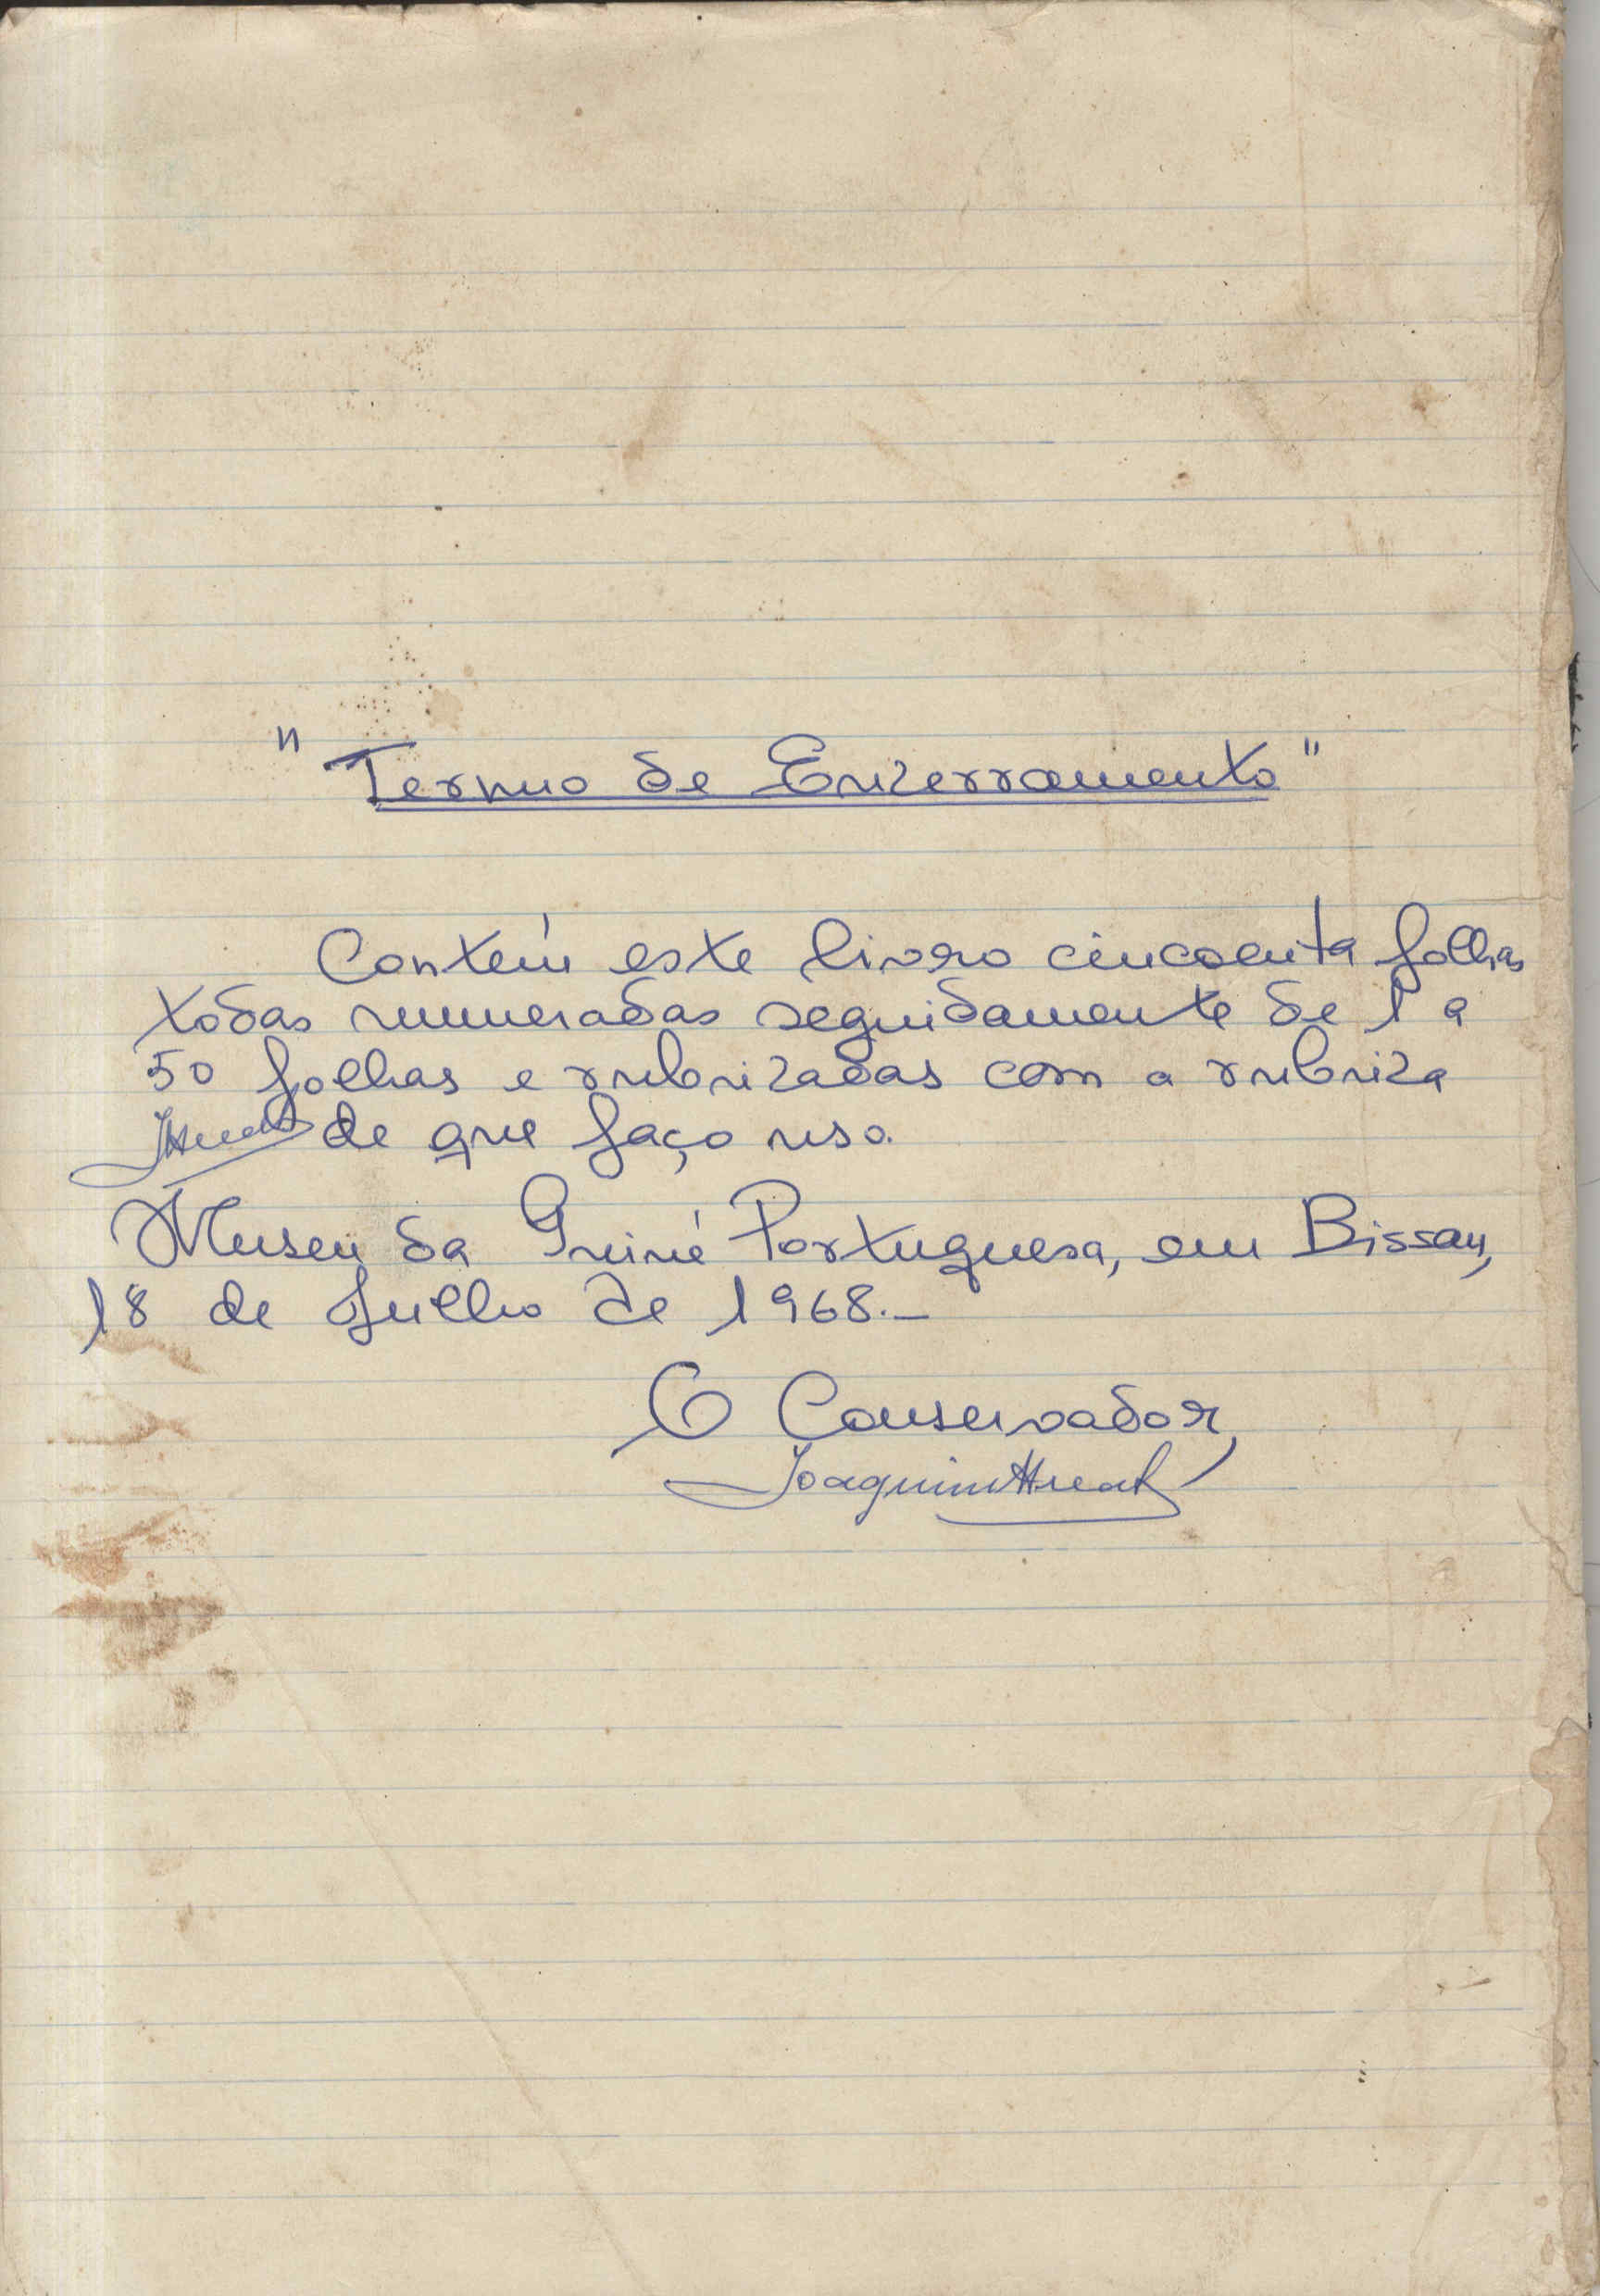 "Termo de Encerramento"
Contém este livro cincoenta folhas
todas numeradas seguidamente de 1 a
50 folhas e rubricadas com a rubrica
de que faço uso.
Museu da Guiné Portuguesa, em Bissau,
18 de Julho de 1968.-
O Conservador,
Joaquim